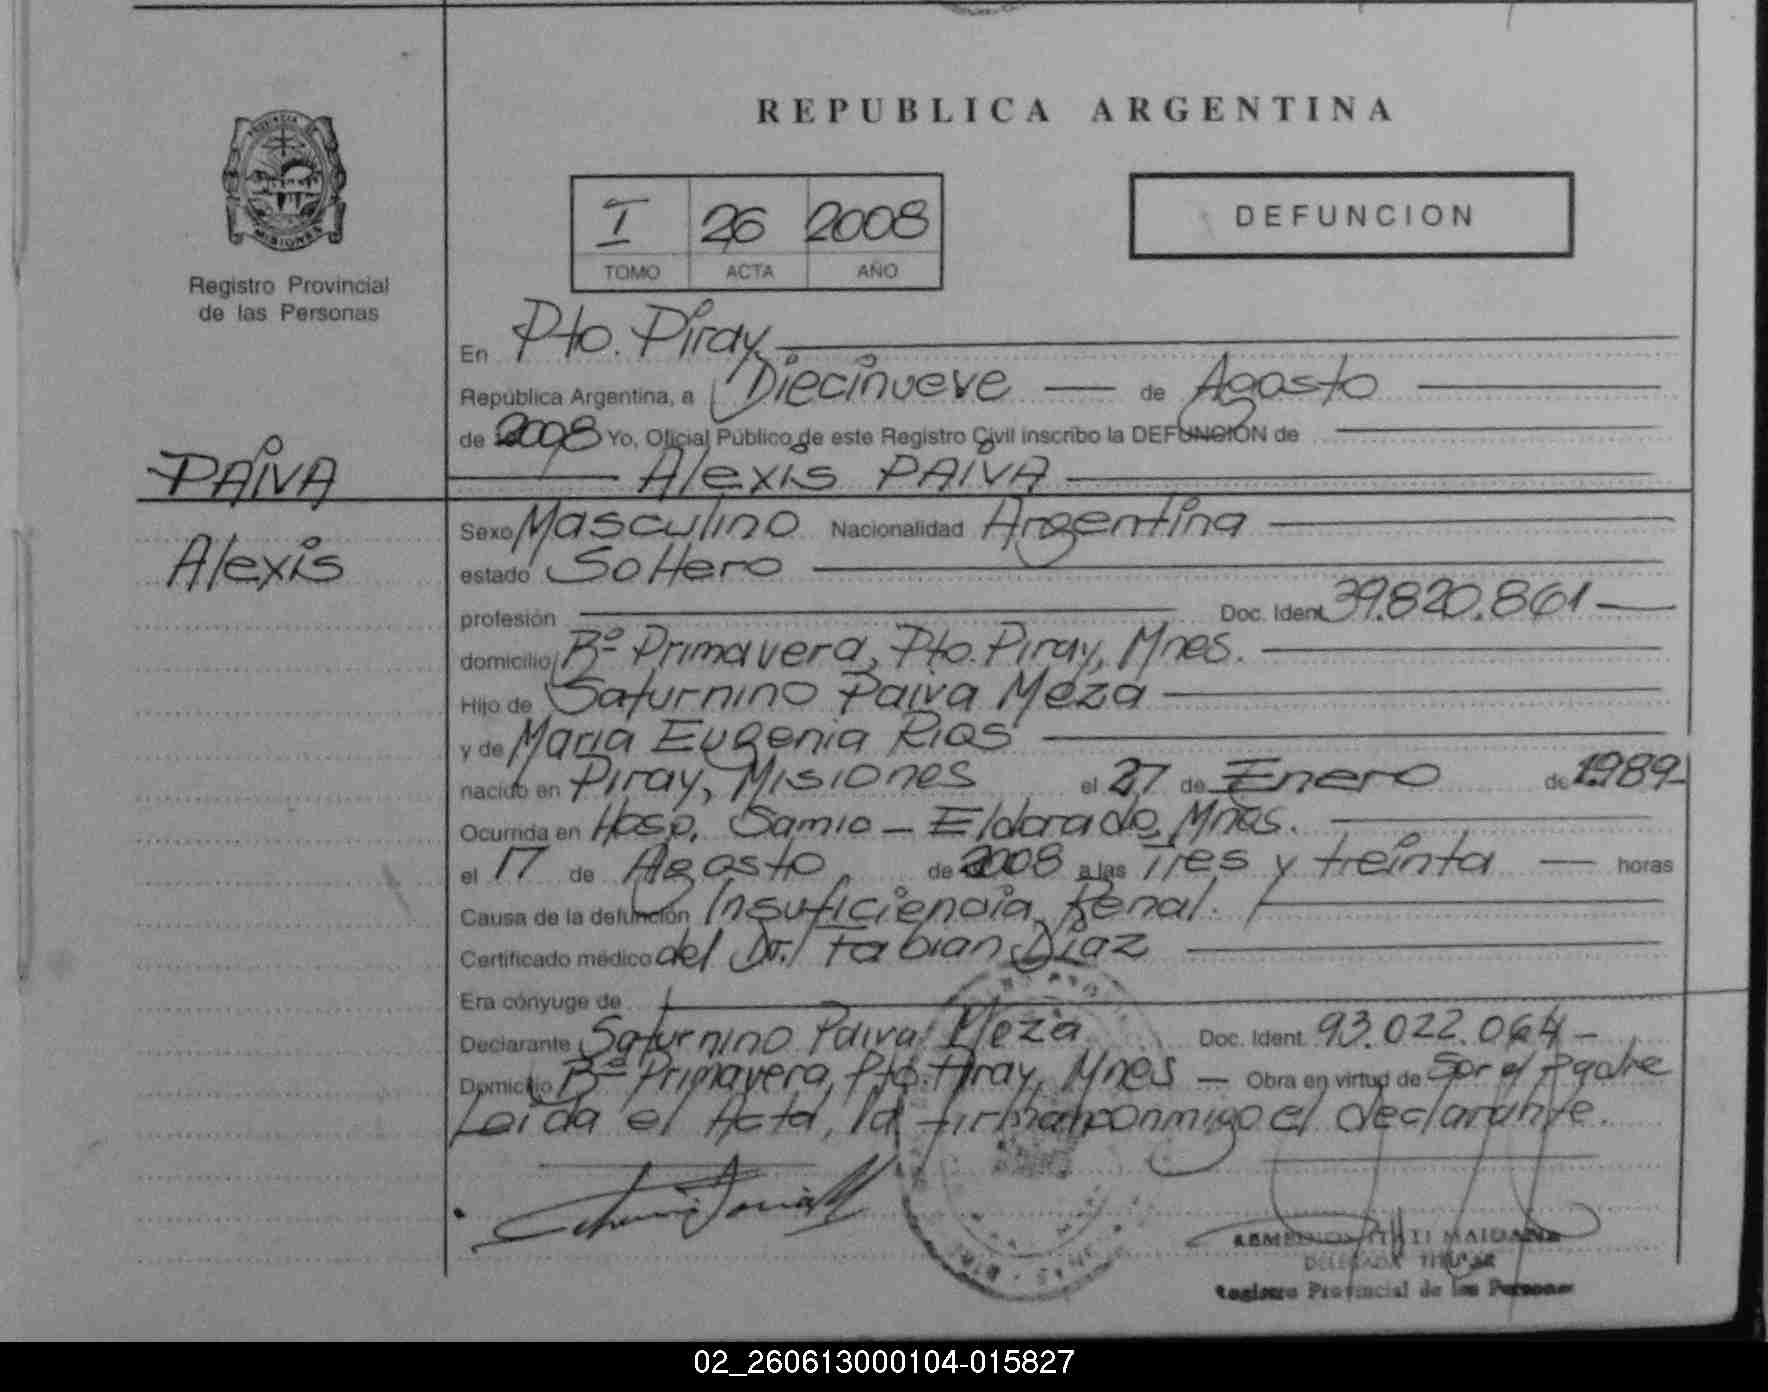 REPUBLICA ARGENTINA
PROVINCIA DE
MISIONES
Registro Provincial
de las Personas
I 26 2008
TOMO ACTA AÑO
DEFUNCION
En Pto. Piray
República Argentina, a Diecinueve de Agosto
de 2008 Yo, Oficial Público de este Registro Civil inscribo la DEFUNCION de
PAIVA
Alexis PAIVA
Alexis
Sexo Masculino Nacionalidad Argentina
estado Soltero
profesión Doc. Ident. 39.820.861
domicilio Bº Primavera, Pto. Piray, Mnes.
Hijo de Saturnino Paiva Meza
y de Maria Eugenia Rios
nacido en Piray, Misiones el 27 de Enero de 1989
Ocurrida en Hosp. Samic - Eldorado, Mnes.
el 17 de Agosto de 2008 a las Tres y treinta horas
Causa de la defunción Insuficiencia Renal.
Certificado médico del Dr. Fabian Diaz
Era cónyuge de
Declarante Saturnino Paiva Meza Doc. Ident. 93.022.064
Domicilio Bº Primavera, Pto. Piray, Mnes - Obra en virtud de Ser el Padre
Leida el Acta, la firman conmigo el declarante.
MAIDANA
DELEGADA TITULAR
Registro Provincial de las Personas
02_260613000104-015827